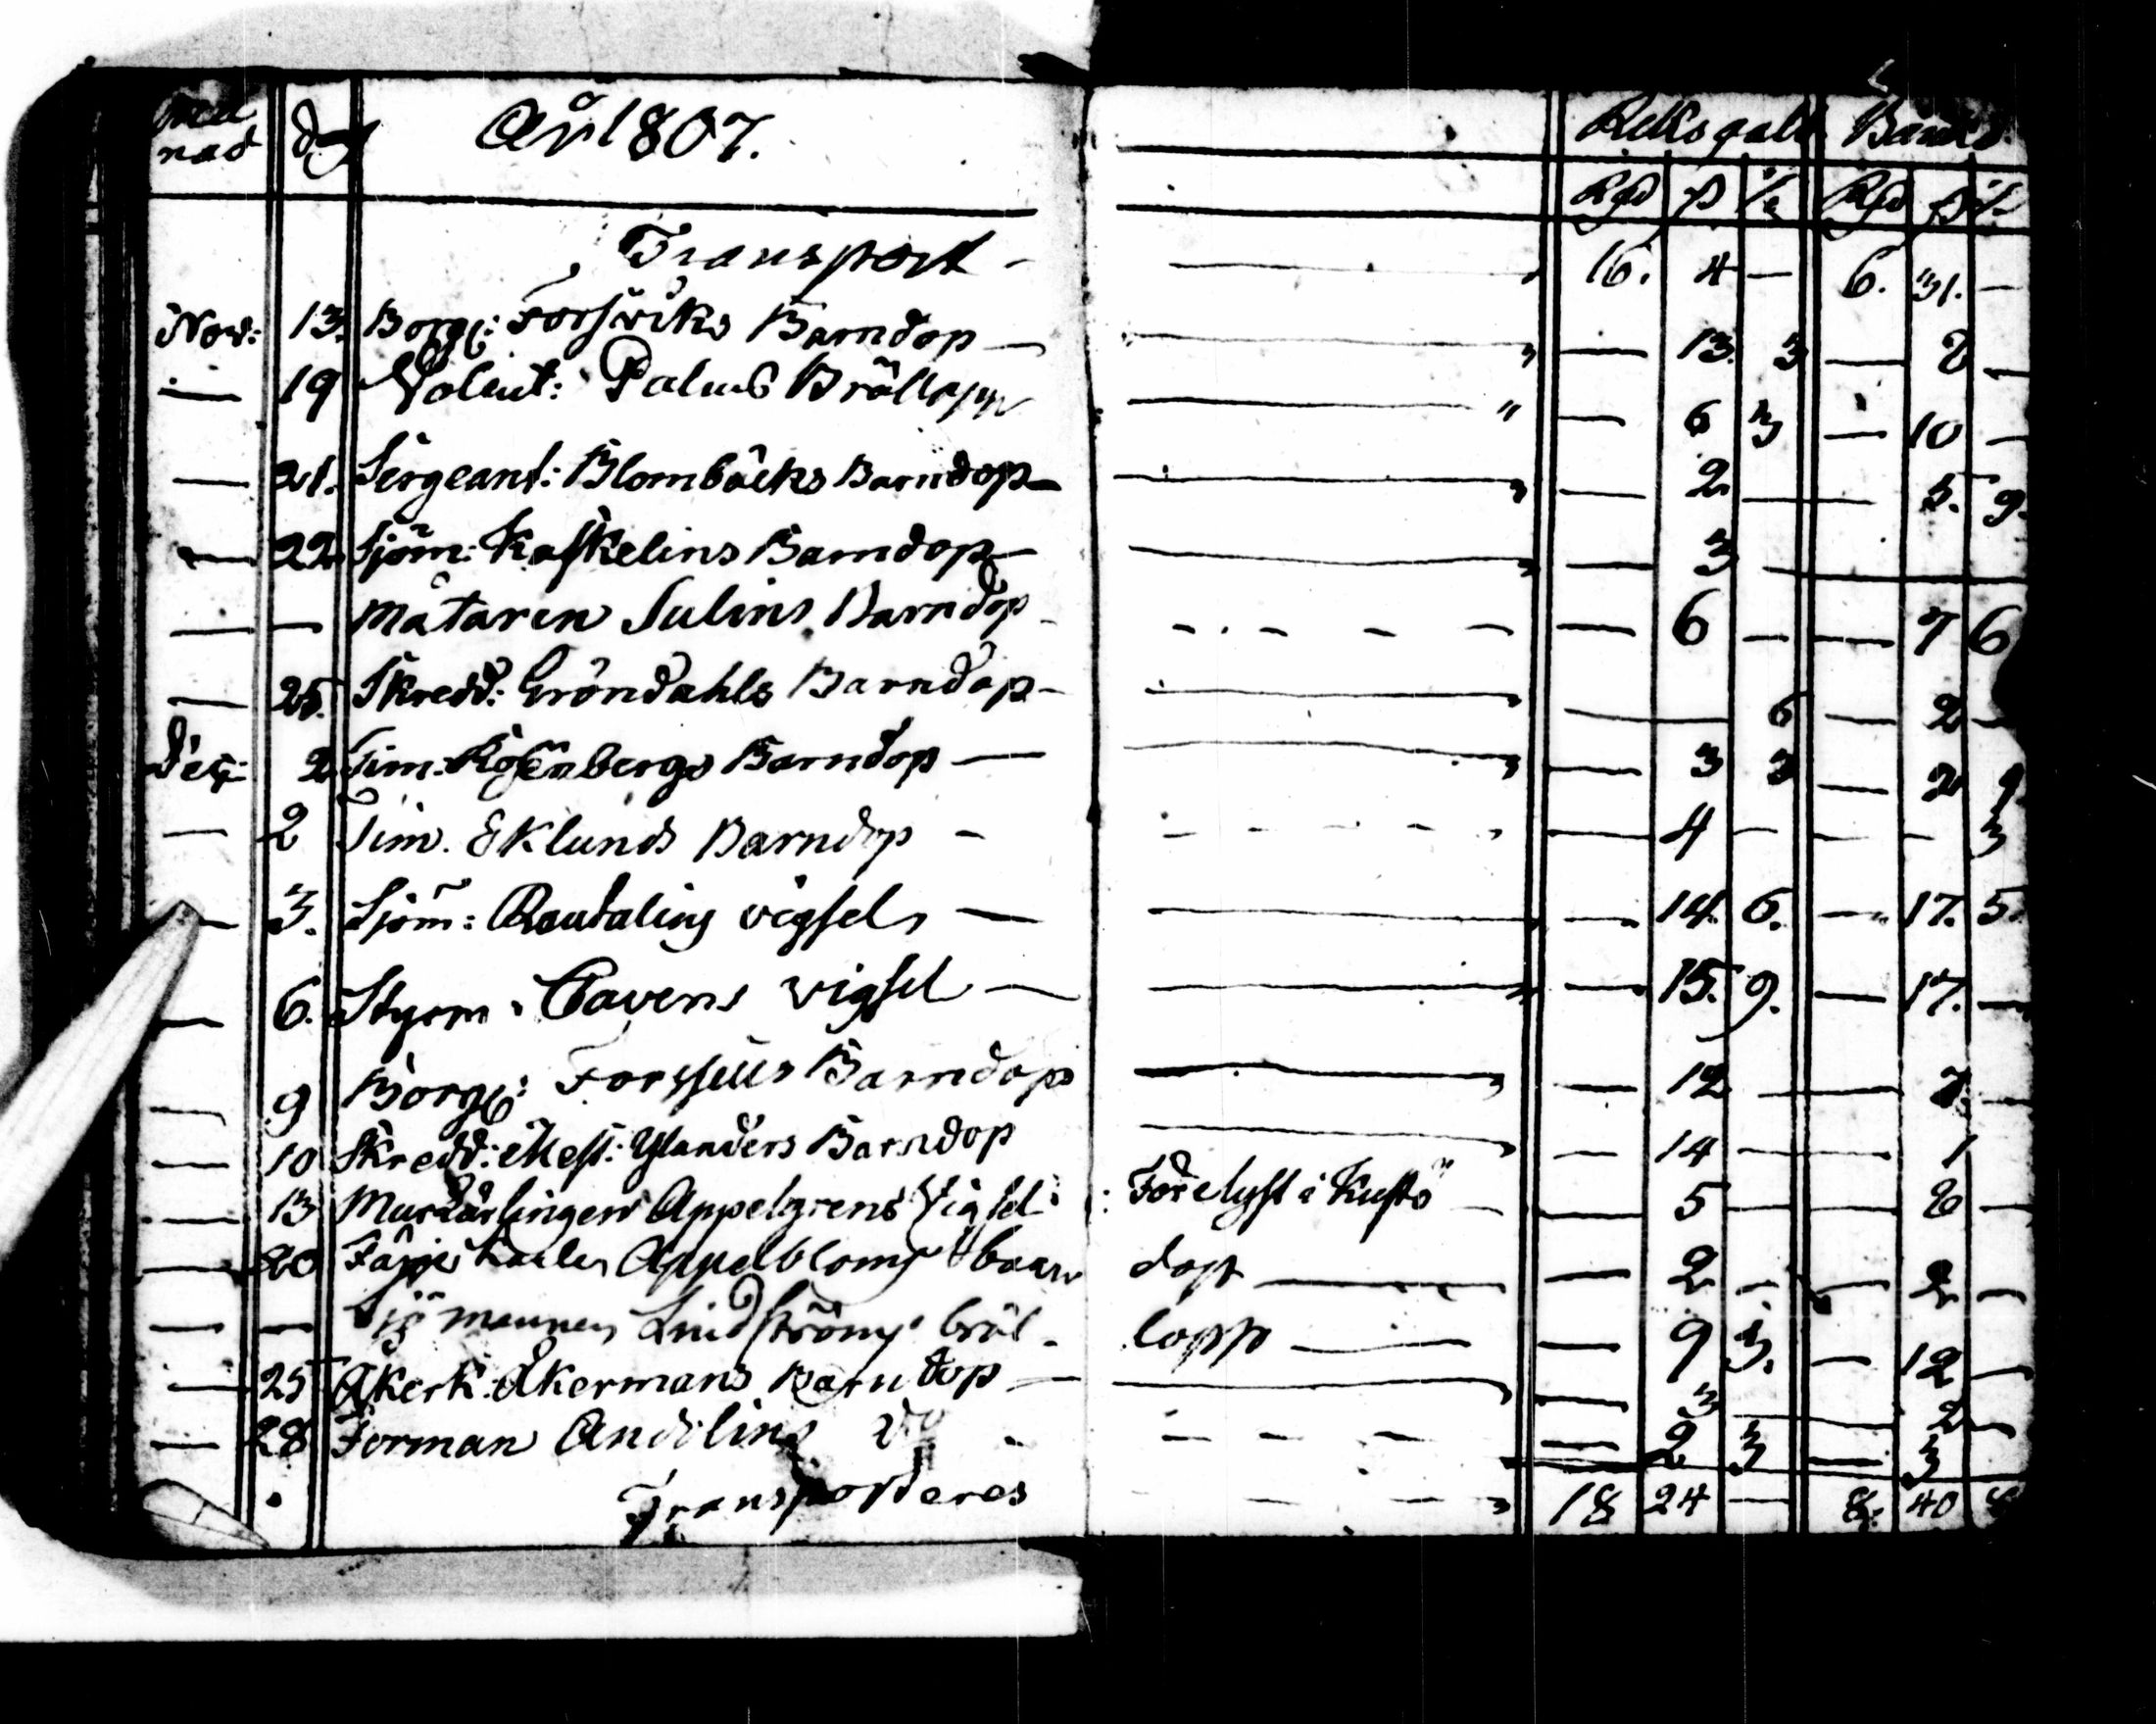 Må nad dag År 1807. Reksgald Banco
Rd ß /: Rd ß /:
Transport - 16. 4 — 6. 31. —
Nov: 13. Borg: Forsviks Barndop — — 13. 3 — 8 —
— 19 Volent: Palms Bröllopp — 6 3 — 10 —
— 21. Sergeant: Blombäcks Barndop — — 2 — 5. 9.
— 22. Sjöm: Kaskelins Barndop — — 3 —
— — Mätaren Sulins Barndop - — 6 — — 7 6
— 25. Skredd: Gröndahls Barndop - — 6 — 2 —
Dec: 2 Tim: Rosenbergs Barndop — — 3 3 — 2 9
— 2 Tim. Eklunds Barndop - — 4 — — 3
— 3. Sjöm: Rautalins vigsel, — — 14. 6. — 17. 5.
— 6. Styrm: Cavens vigsel — — 15. 9. — 17. —
— 9 Borg: Forssells Barndop — 12 — 7. —
— 10 Skredd: Mest: Ylanders Barndop — 14 — 1
— 13 Appelgrens Vigsel : Förelyst i Kustö — 5 — 8 —
— 20 Appelbloms baarn dop — — 2 - — 2 —
— — Sjömannen Lindströms bröl- lopp — — 9 3. — 12 —
— 25 Åkerk: Åkermans Barndop — — 3 — 2 —
— 28 Forman Andelins do - — 2 3 — 3
Transporteres 18 24 — 8. 40 8